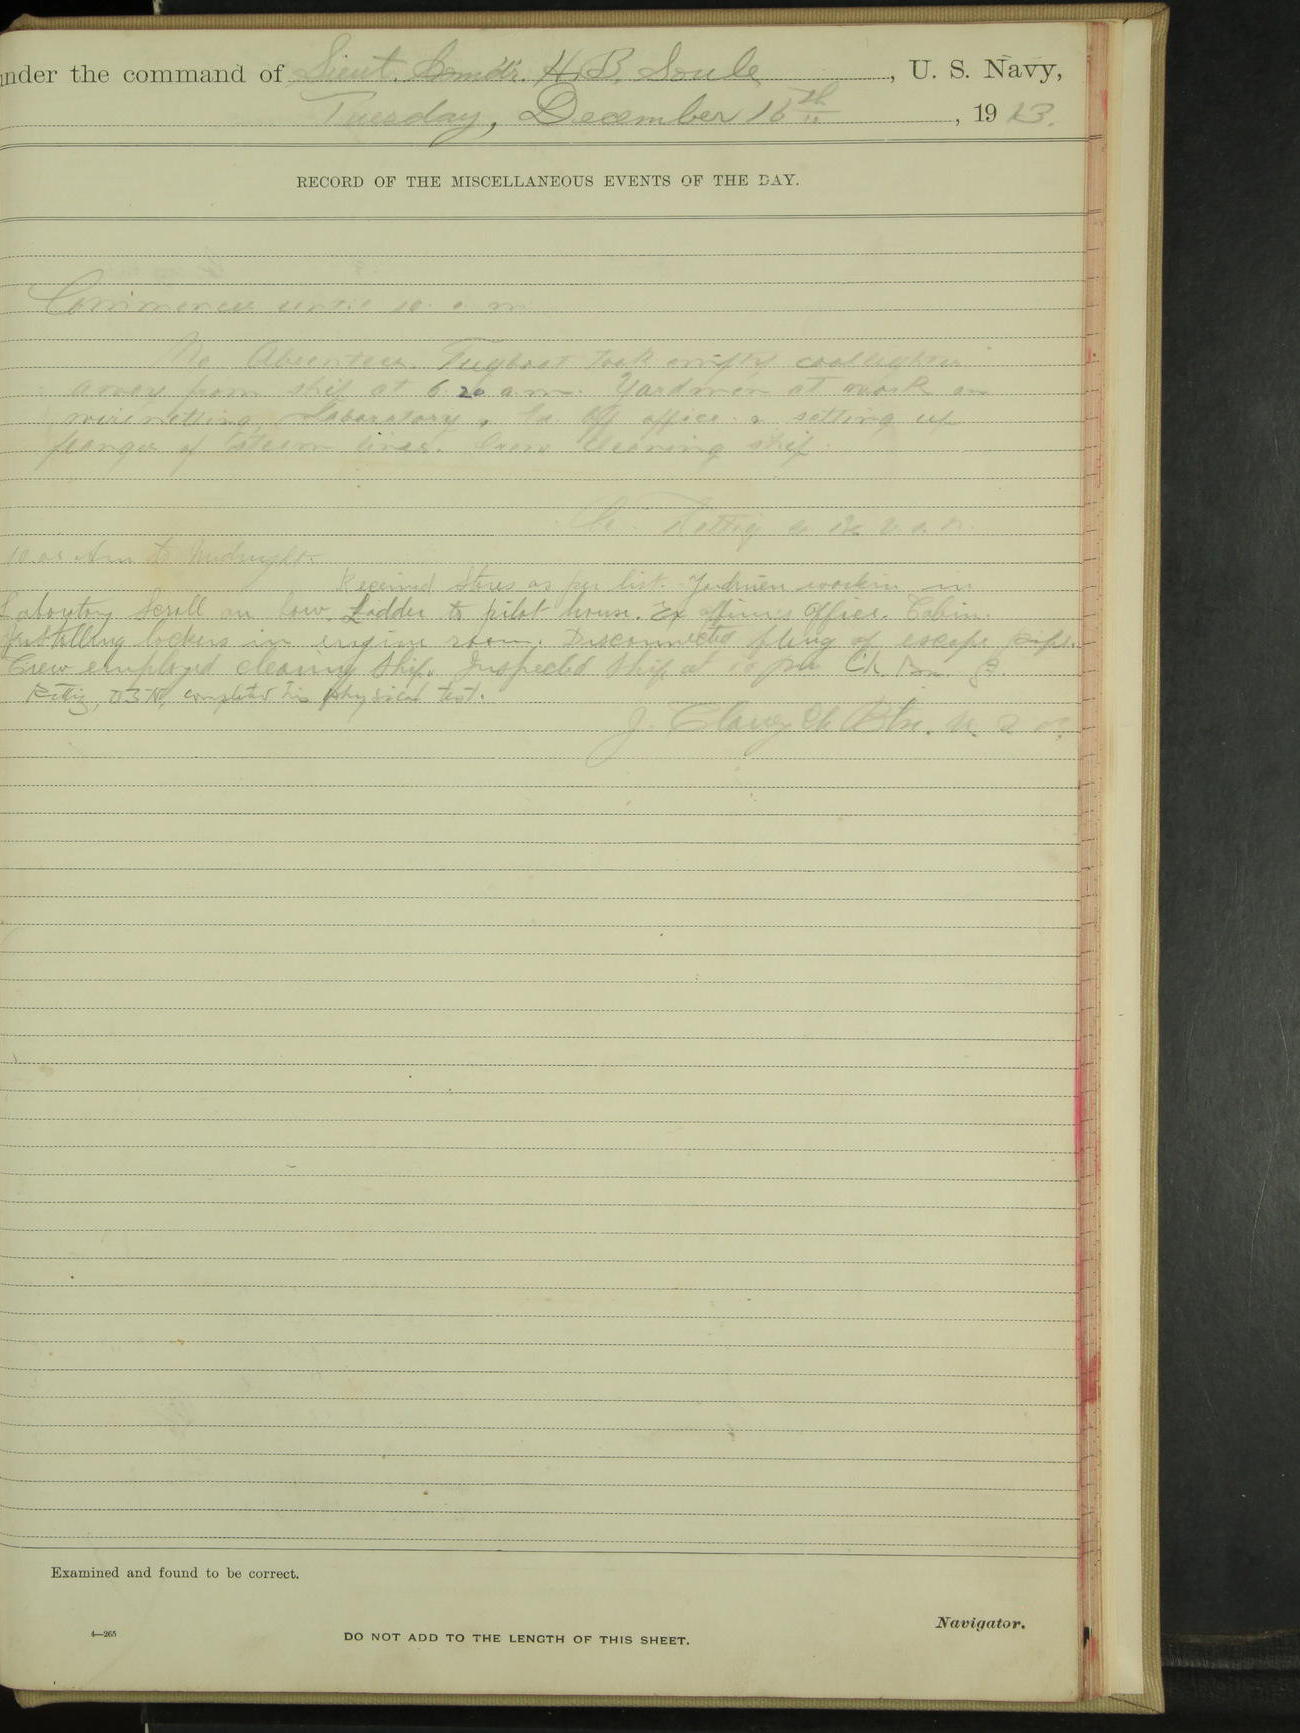 under the command of Lieut. Comdr. H. B. Soule, U. S. Navy,
Tuesday, December 16th, 1913.
RECORD OF THE MISCELLANEOUS EVENTS OF THE DAY.
Commence until 10 a m
No Absentees. Tugboat took empty coal lighter
away from ship at 6.20 a.m. Yardmen at work on
wire netting, Laboratory, office & setting up
flanges of steam lines. Crew cleaning ship.
Rettig
Am to Midnight.
Received Stores as per list. Yardmen workin in
Laboratory Scroll on bow. Ladder to pilot house. Ex officers Office. Cabin.
Installing lockers in engine room. Disconnected of escape pipe.
Crew employed cleaning ship. Inspected ship at
Rettig, USN, completed his physical test.
J. Clancy Ch Btn. U. S. N.
Examined and found to be correct.
Navigator.
4—265
DO NOT ADD TO THE LENGTH OF THIS SHEET.